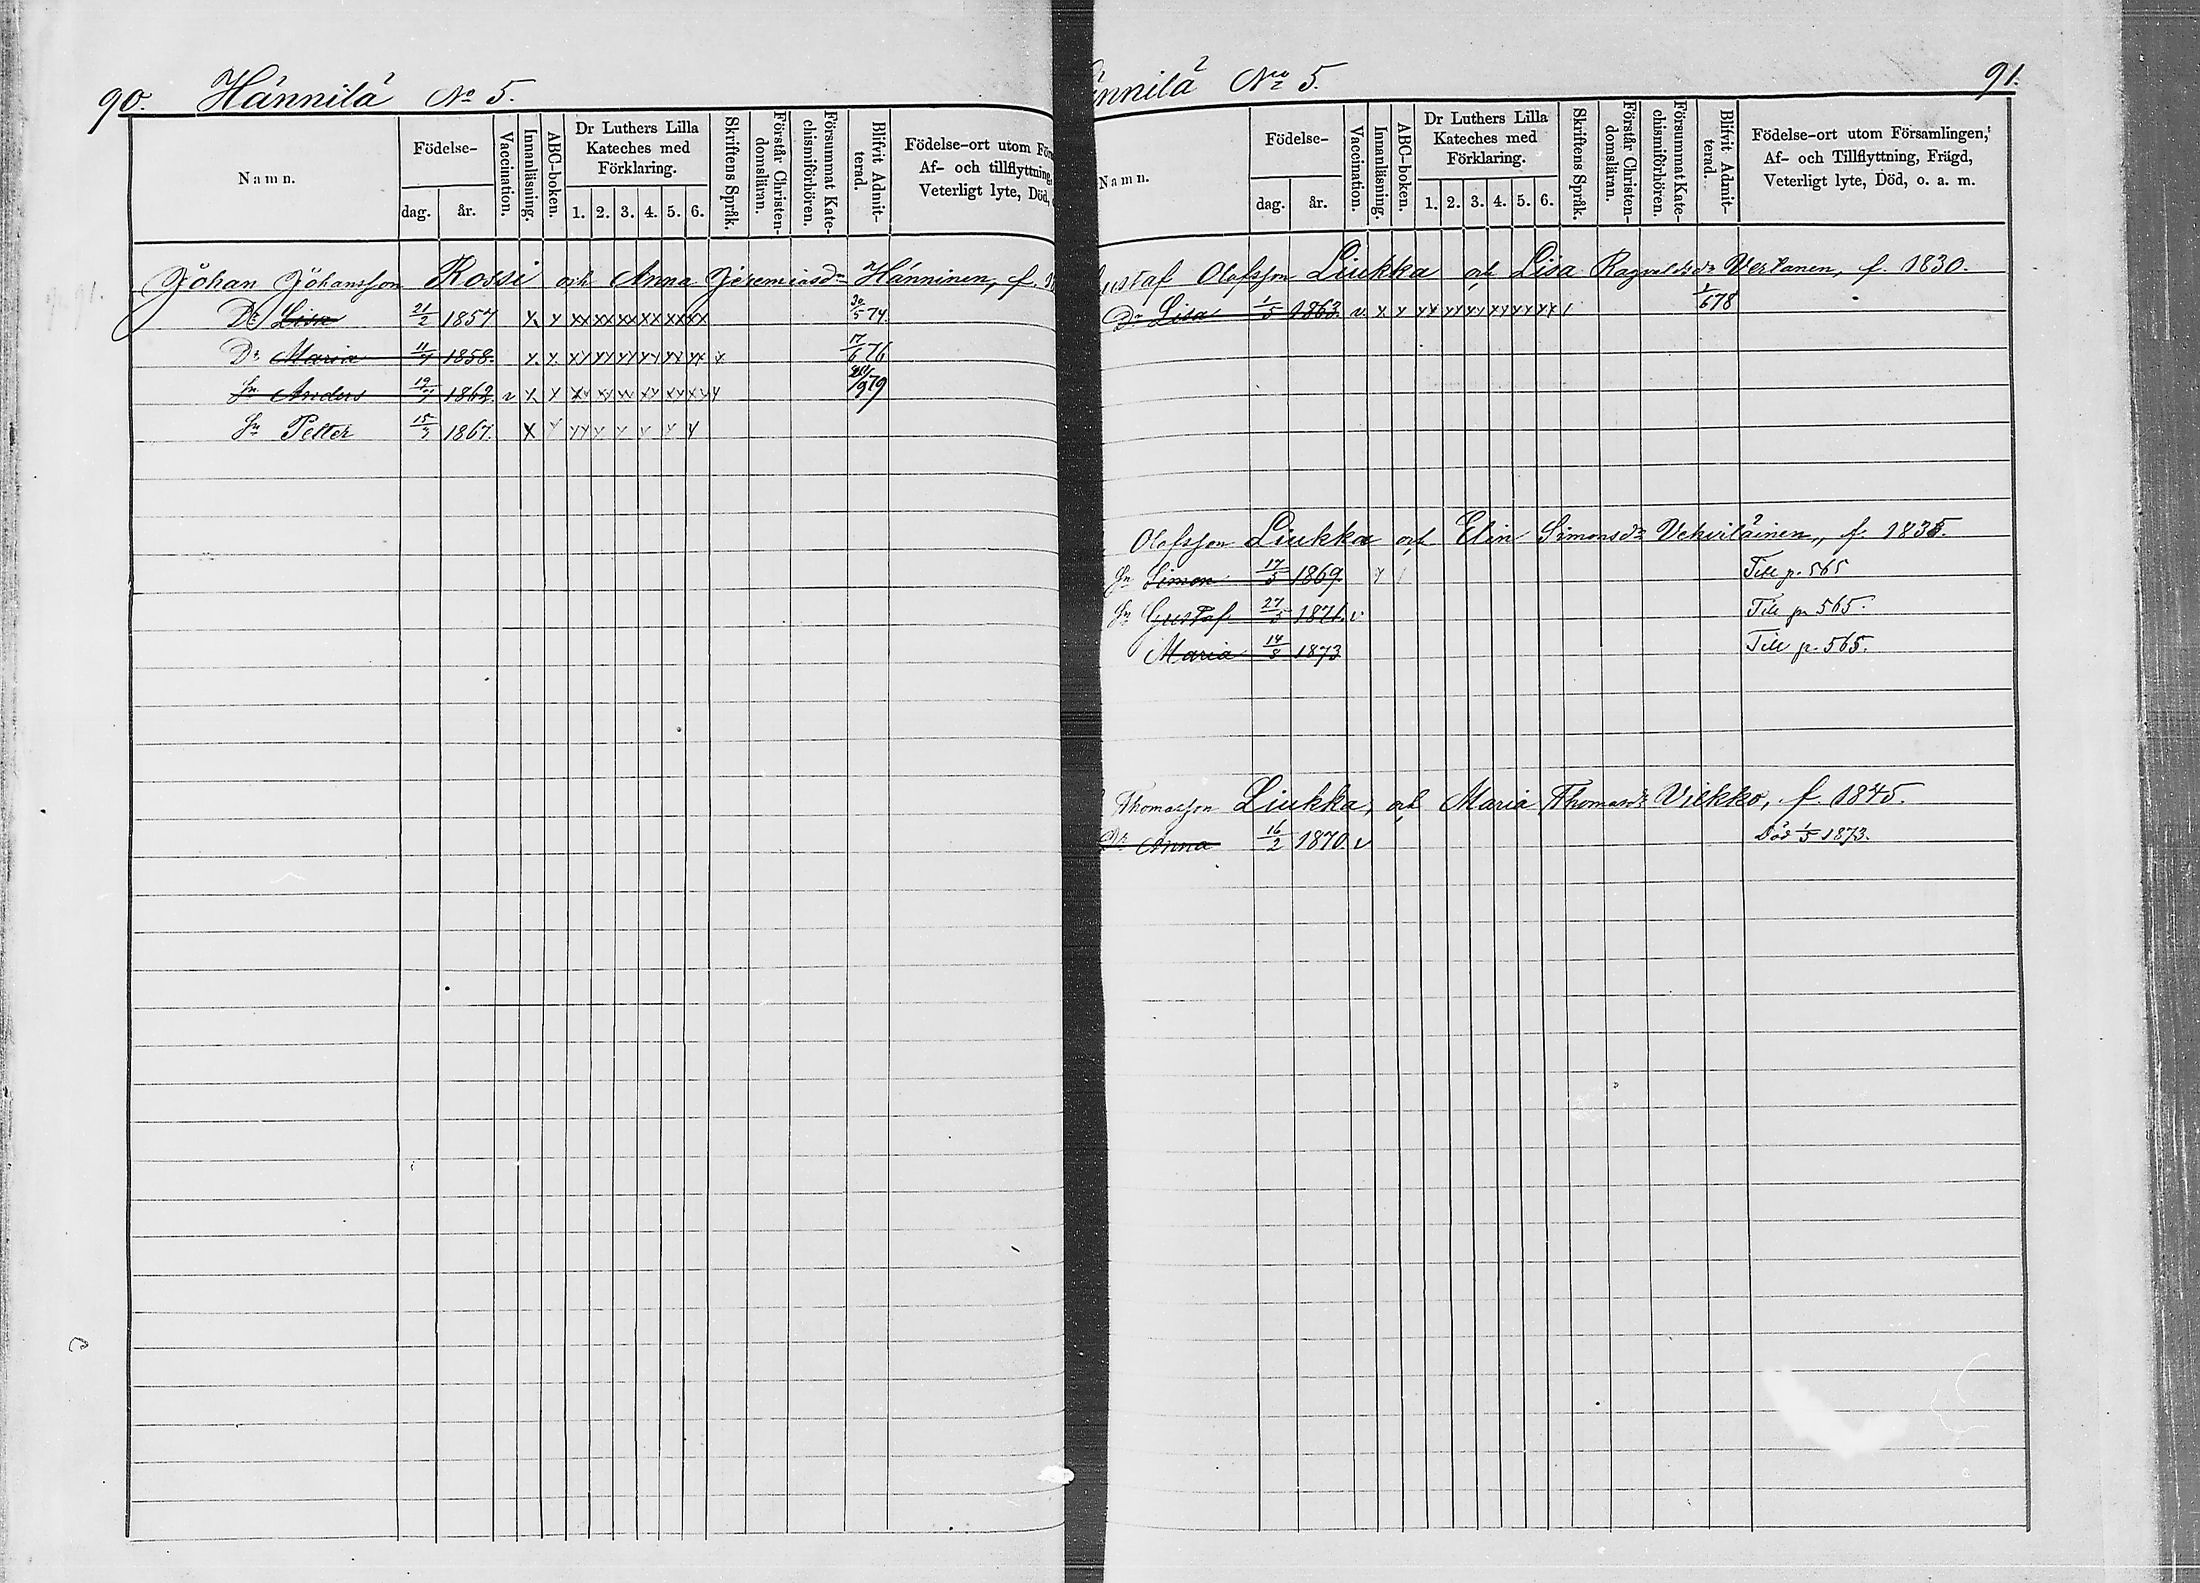 90. Hännilä No 5.
Namn.
Födelse-
dag. år.
Vaccination.
Innanläsning.
ABC-boken.
Dr Luthers Lilla
Kateches med
Förklaring.
1. 2. 3. 4. 5. 6.
Skriftens Språk.
Förstår Christen-
domsläran.
Försummat Kate-
chismiförhören.
Blifvit Admit-
terad.
Födelse-ort utom För
Af- och tillflyttning,
Veterligt lyte, Död,
Johan Johansson Rossi och Anna Jeremiasdr Hänninen, f.
Dr Lisa 21/2 1857 x x xx xx xx xx xx xx 30/5 74.
Dr Maria 1858. x x xx xx xx xx xx xx x 17/6 76
Sn Anders 1862. v x x xx xx xx xx xx xx x 79
Sn Petter 1867. x x xx x x x x x
nnilä No 5. 91.
Namn.
Födelse-
dag. år.
Vaccination.
Innanläsning.
ABC-boken.
Dr Luthers Lilla
Kateches med
Förklaring.
1. 2. 3. 4. 5. 6.
Skriftens Språk.
Förstår Christen-
domsläran.
Försummat Kate-
chismiförhören.
Blifvit Admit-
terad.
Födelse-ort utom Församlingen,
Af- och Tillflyttning, Frägd,
Veterligt lyte, Död, o. a. m.
ustaf Olofsson Liukka och Lisa Ragvaldsdr Vertanen, f. 1830.
Dr Lisa 1/5 1863. v x x xx xx xx xx xx xx / 1/6 78
Olofsson Liukka och Elin Simonsdr Vehviläinen, f. 1835.
Sn Simon 17/5 1869 x / Till p. 565
Sn Gustaf 27/5 1871. v Till p. 565.
Maria 14/8 1873 Till p. 565.
Thomasson Liukka, och Maria Thomasdr Vilkko, f. 1845.
Dr Anna 16/2 1870. v Död 1/5 1873.